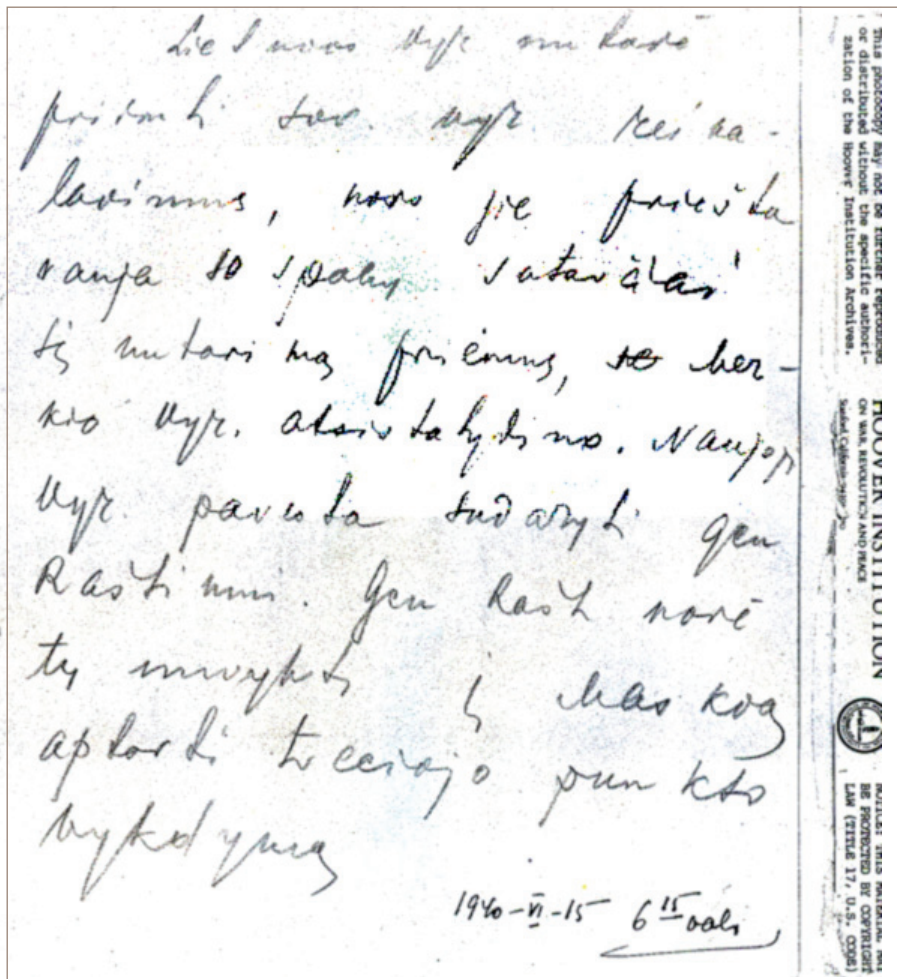 Lietuvos vyr nutarė
priimti sov. vyr reika-
lavimus, nors jie priešta
rauja 10 spalių sutarčiai
šį nutarimą priėmus, Mer-
kio vyr. atsistatydino. Naujoji
vyr. pavesta sudaryti gen
Raštikiui. Gen Rašt norė
tų nuvykti į Maskvą
aptarti trečiojo punkto
vykdymą
1940-VI-15 6 15 val
This photocopy may not be further reproduced
or distributed without the specific authori-
zation of the Hoover Institution Archives.
HOOVER INSTITUTION
ON WAR, REVOLUTION AND PEACE
BE PROTECTED BY COPYRIGHT
LAW (TITLE 17, U.S. CODE)